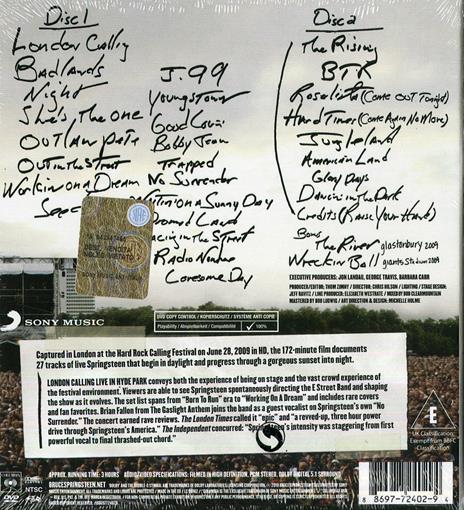 Disc 1
London Calling
Badlands
Night
She's The One
Outlaw Pete
Out in the Street
Workin on a Dream
J. 99
Youngstown
Good Lovin
Bobby Jean
Trapped
No Surrender
on a Sunny Day
Promised Land
Racing in the Street
Radio Nowhere
Lonesome Day
Disc 2
The Rising
BTR
Rosalita (Come Out Tonight)
Hard Times (Come Again No More)
Jungleland
American Land
Glory Days
Dancing in the Dark
Credits (Raise Your Hand)
Bonus
The River glastonbury 2009
Wreckin Ball giants stadium 2009
EXECUTIVE PRODUCERS: JON LANDAU, GEORGE TRAVIS, BARBARA CARR
PRODUCER/EDITOR: THOM ZIMNY / DIRECTOR: CHRIS HILSON / LIGHTING / STAGE DESIGN:
JEFF RAVITZ / LINE PRODUCER: ELIZABETH WESTRATE / MIXED BY BOB CLEARMOUNTAIN
MASTERED BY BOB LUDWIG / ART DIRECTION & DESIGN: MICHELLE HOLME
SIAE
SONY MUSIC
DVD COPY CONTROL / KOPIERSCHUTZ / SYSTÈME ANTI COPIE
Playability / Abspielbarkeit / Compatibilité ✓ 100%
Captured in London at the Hard Rock Calling Festival on June 28, 2009 in HD, the 172-minute film documents
27 tracks of live Springsteen that begin in daylight and progress through a gorgeous sunset into night.
LONDON CALLING LIVE IN HYDE PARK conveys both the experience of being on stage and the vast crowd experience of
the festival environment. Viewers are able to see Springsteen spontaneously directing the E Street Band and shaping
the show as it evolves. The set list spans from "Born To Run" era to "Working On A Dream" and includes rare covers
and fan favorites. Brian Fallon from The Gaslight Anthem joins the band as a guest vocalist on Springsteen's own "No
Surrender." The concert earned rare reviews. The London Times called it "epic" and "a revved-up, three hour power
drive through Springsteen's America." The Independent concurred: "Springsteen's intensity was staggering from first
powerful vocal to final thrashed-out chord."
E
UK Classification:
Exempt from BBFC
Classification
DVD
NTSC
APPROX. RUNNING TIME: 3 HOURS AUDIO/VIDEO SPECIFICATIONS: FILMED IN HIGH DEFINITION, PCM STEREO, DOLBY DIGITAL 5.1 SURROUND
BRUCESPRINGSTEEN.NET
8 8697-72402-9 4